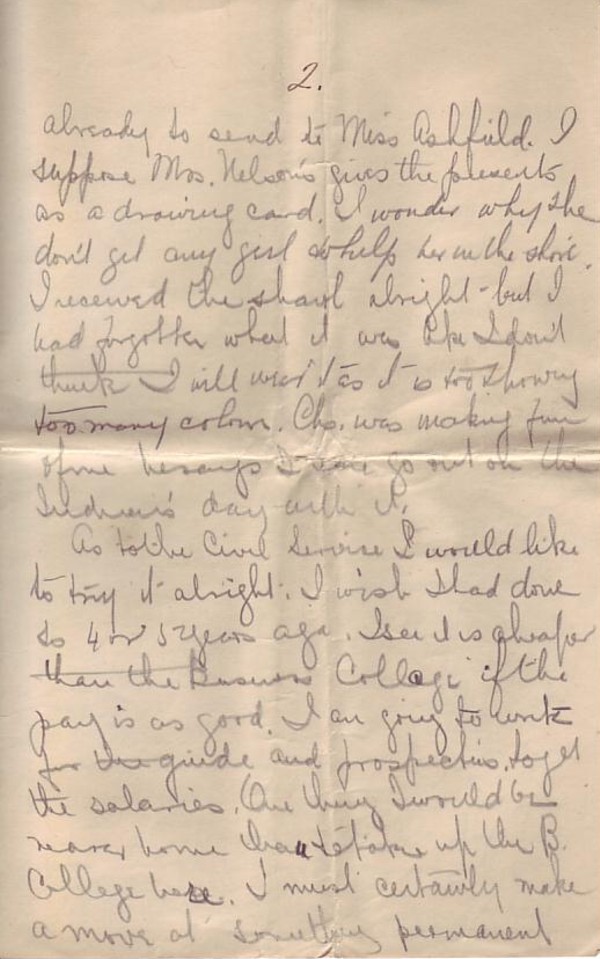 2.
already to send to Miss Ashfield. I
suppose Mrs. Nelson's gives the presents
as a drawing card. I wonder why she
don't get any girl to help her in the store.
I received the shawl alright - but I
had forgotten what it was like I don't
think I will wear it as it is too showy
too many colours. Chs. was making fun
of me he says I can go out on the
Indian's day with it.
As to the Civil Service I would like
to try it alright. I wish I had done
so 4 or 5 years ago. I see it is cheaper
than the Business College if the
pay is as good. I am going to write
for the guide and prospectus, to get
the salaries. One thing I would be
nearer home than to take up the B.
College here. I must certainly make
a move at something permanent